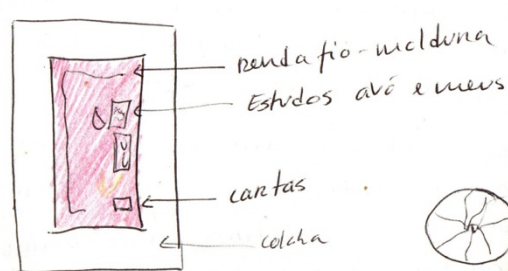 renda fio-moldura
Estudos avó e meus
cartas
colcha